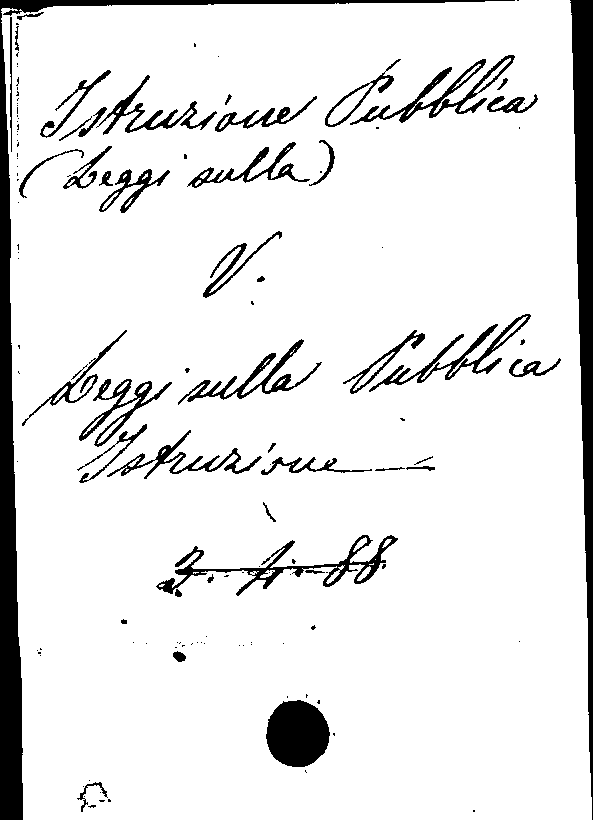 Istruzione Pubblica
(Leggi sulla)
V.
Leggi sulla Pubblica
Istruzione